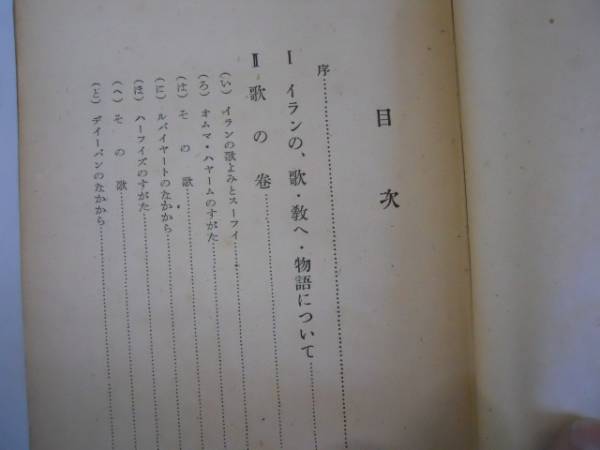 目次
序
I イランの、歌・教へ・物語について
II 歌の巻
(い) イランの歌よみとスーフイ
(ろ) オムマ・ハヤームのすがた
(は) その歌
(に) ルバイヤートのなかから
(ほ) ハーフイズのすがた
(へ) その歌
(と) デイーバンのなかから